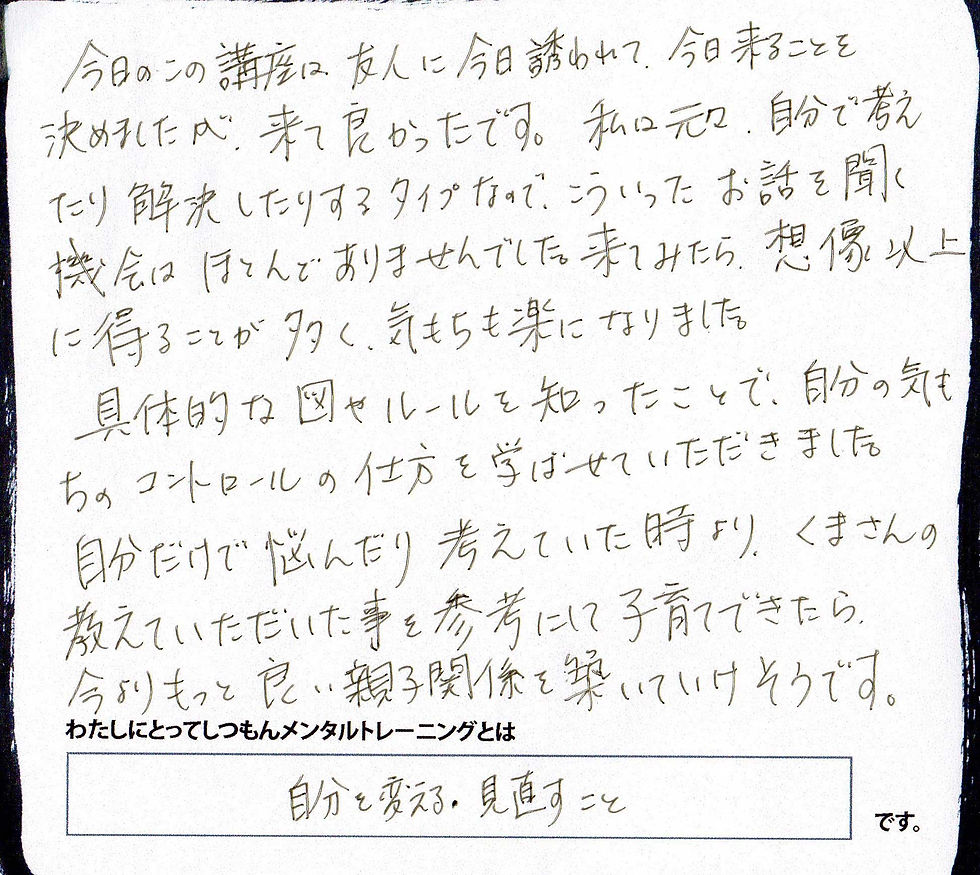 今日のこの講座は、友人に今日誘われて、今日来ることを
決めましたが、来て良かったです。私は元々、自分で考え
たり解決したりするタイプなので、こういったお話を聞く
機会はほとんどありませんでした。来てみたら、想像以上
に得ることが多く、気もちも楽になりました。
具体的な図やルールを知ったことで、自分の気も
ちのコントロールの仕方を学ばせていただきました。
自分だけで悩んだり考えていた時より、くまさんの
教えていただいた事を参考にして子育てできたら、
今よりもっと良い親子関係を築いていけそうです。
わたしにとってしつもんメンタルトレーニングとは
自分を変える・見直すこと
です。